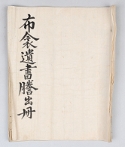 布衾遺書謄出冊